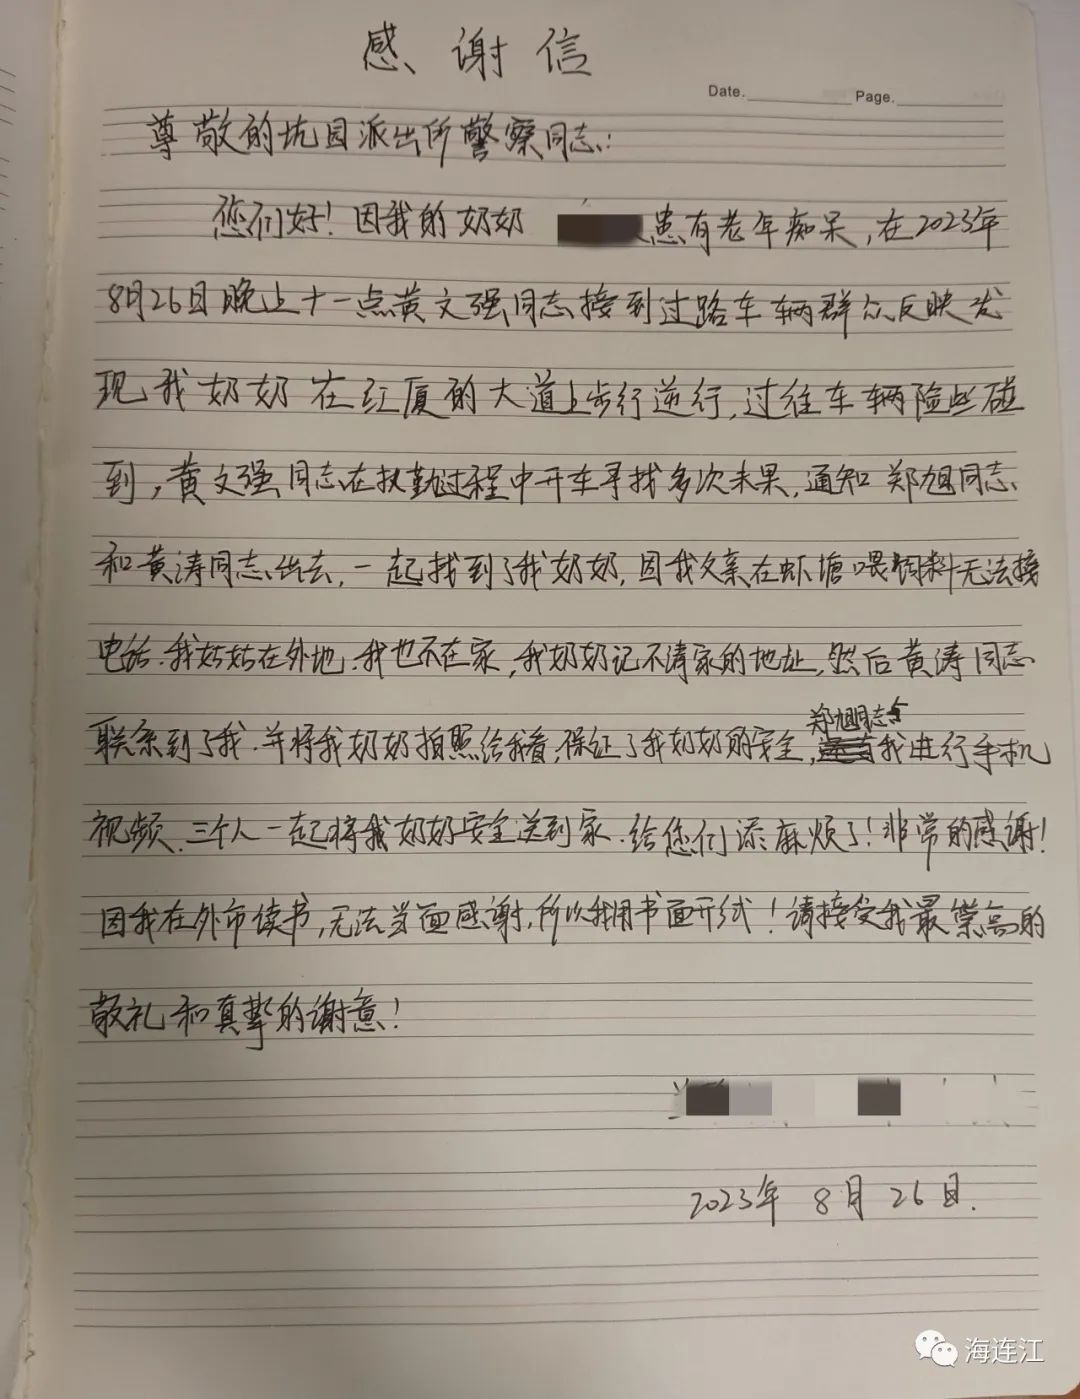 感谢信
Date. Page.
尊敬的坑园派出所警察同志:
您们好！因我的奶奶 患有老年痴呆,在2023年
8月26日晚上十一点黄文强同志接到过路车辆群众反映发
现我奶奶在红厦的大道上步行逆行,过往车辆险些碰
到,黄文强同志在执勤过程中开车寻找多次未果,通知郑旭同志
和黄涛同志出去,一起找到了我奶奶,因我父亲在虾塘喂饲料无法接
电话.我姑姑在外地.我也不在家,我奶奶记不清家的地址,然后黄涛同志
联系到了我.并将我奶奶拍照给我看,保证了我奶奶的安全,郑旭同志与我进行手机
视频.三个人一起将我奶奶安全送到家.给您们添麻烦了!非常的感谢!
因我在外市读书,无法当面感谢,所以我用书面开式!请接受我最崇高的
敬礼和真挚的谢意!
2023年 8月 26日.
海连江